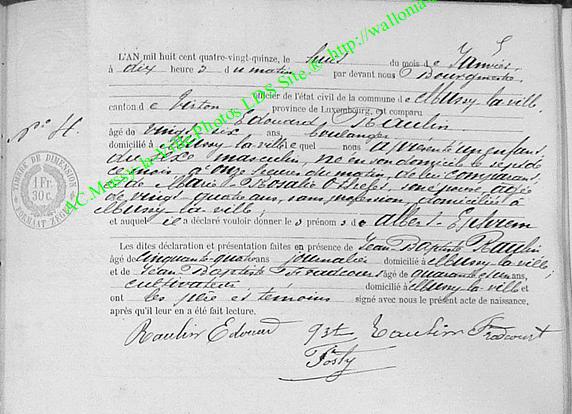 L'AN mil huit cent quatre-vingt-quinze, le huit du mois de Janvier
à dix heures du matin par devant nous Bourgmestre
officier de l'état civil de la commune de Mussy-la-ville,
canton de Virton province de Luxembourg, est comparu
Edouard Raulin
âgé de vingt six ans boulanger
domicilié à Mussy-la-ville quel nous a présenté un enfant
du sexe masculin, né en son domicile le sept de
ce mois à onze heures du matin, de lui comparant
et de Marie Rosalie son épouse, âgée
de vingt quatre ans, sans profession, domiciliée à
Mussy-la-ville;
et auquel il a déclaré vouloir donner les prénoms de Albert-Ephrem
Les dites déclaration et présentation faites en présence de Jean Baptiste Raulin
âgé de cinquante-quatre ans journalier domicilié à Mussy-la-ville
et de Jean Baptiste Frodcourt âgé de quarante et un ans,
cultivateur, domicilié à Mussy-la-ville et
ont les père et témoins signé avec nous le présent acte de naissance,
après qu'il leur en a été fait lecture.
Raulin Edouard Jbt Raulin Frodcourt
N° 4.
TIMBRE DE DIMENSION
1 Fr.
30 c.
AC.Mussy-la-Ville Photos LDS Site & http://wallonia